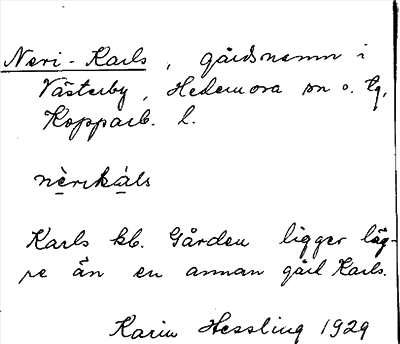 Neri-Karls, gårdsnamn i
Västerby, Hedemora sn o. tg,
Kopparb. l.
nèrikàls
Karls kb. Gården ligger läg-
re än en annan gård Karls.
Karin Hessling 1929